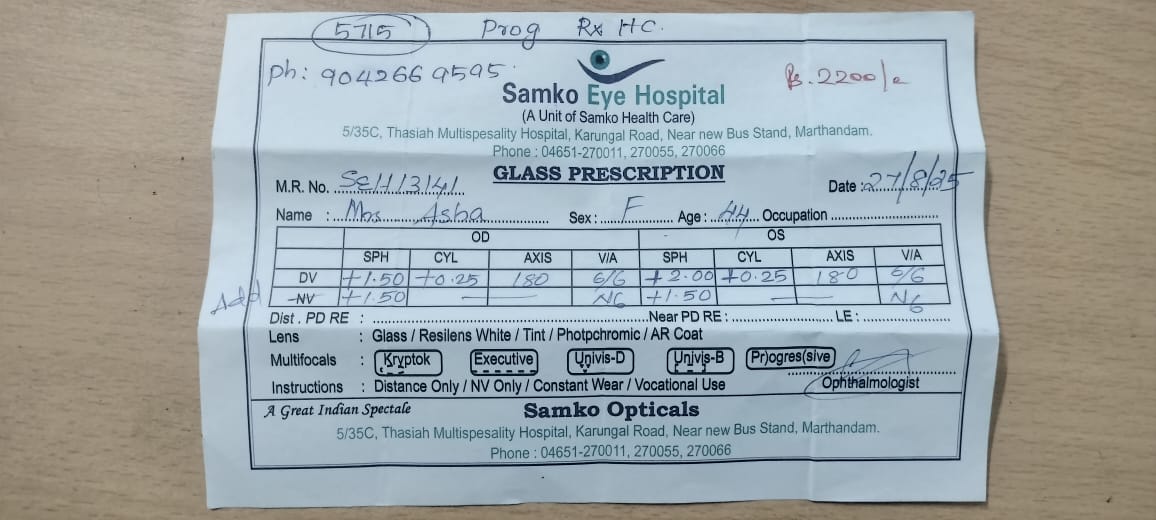 5715 Prog Rx HC.
Ph: 9042669595
Rs. 2200/-
Samko Eye Hospital
(A Unit of Samko Health Care)
5/35C, Thasiah Multispesality Hospital, Karungal Road, Near new Bus Stand, Marthandam.
Phone : 04651-270011, 270055, 270066
GLASS PRESCRIPTION
M.R. No. Date : 27/8/25
Name : Mrs Asha Sex : F Age : 44 Occupation
OD OS
SPH CYL AXIS V/A SPH CYL AXIS V/A
DV +1.50 +0.25 180 6/6 +2.00 +0.25 180 6/6
Add NV +1.50 — — N6 +1.50 — — N6
Dist . PD RE : Near PD RE : LE :
Lens : Glass / Resilens White / Tint / Photpchromic / AR Coat
Multifocals : Kryptok Executive Univis-D Univis-B Pr)ogres(sive
Instructions : Distance Only / NV Only / Constant Wear / Vocational Use Ophthalmologist
A Great Indian Spectale Samko Opticals
5/35C, Thasiah Multispesality Hospital, Karungal Road, Near new Bus Stand, Marthandam.
Phone : 04651-270011, 270055, 270066